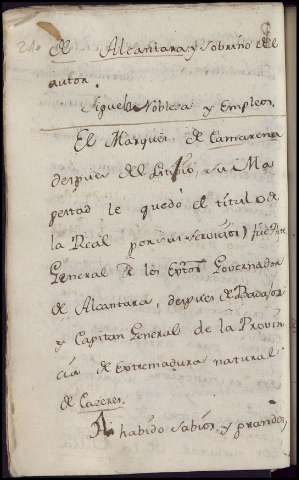 de Alcantara y sobrino del
autor.
Sigue la Nobleza y Empleos.
El Marques de Camarena
despues del sitio, su Ma
gestad le quedó el titulo de
la Real por sus servicios) fue Thte
General de los Extos Governador
de Alcantara, despues de Badajoz
y Capitan General de la Provin
cia de Extremadura natural
de Cazeres.
A habido sabios, y grandes